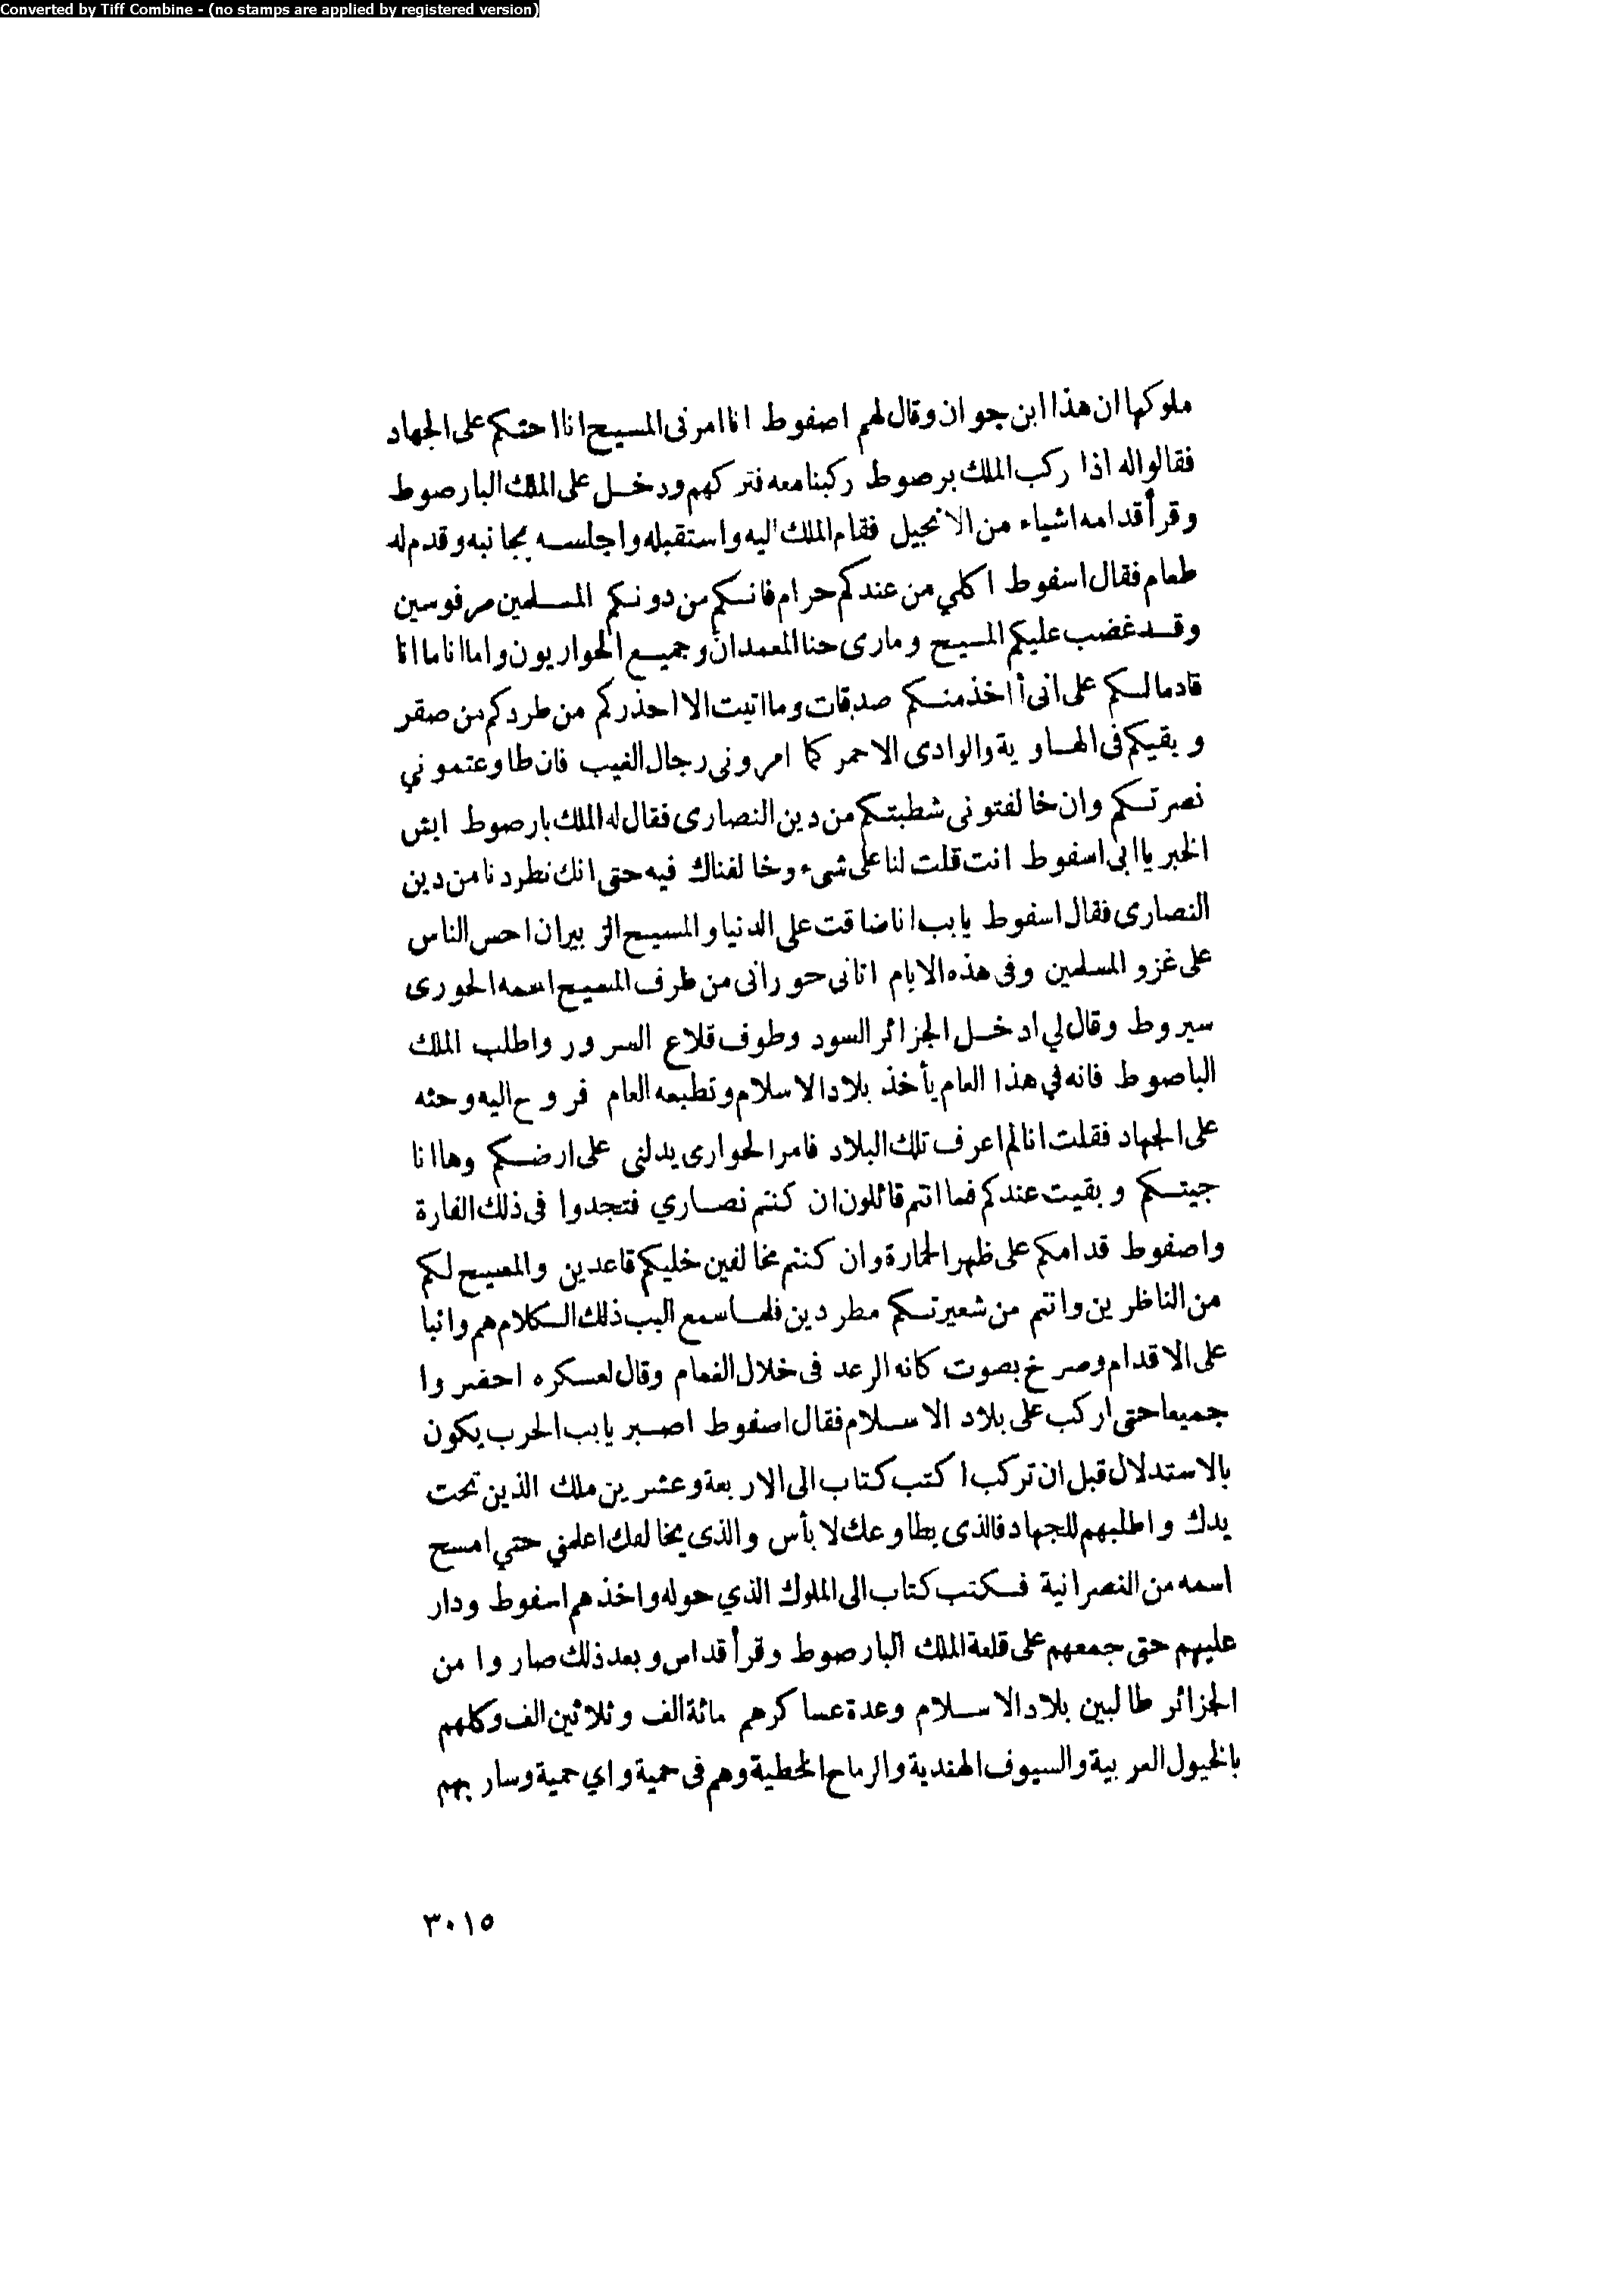 Converted by Tiff Combine - (no stamps are applied by registered version)
ملوكها ان هذا ابن جوان وقال لهم اصفوط انا امرنى المسيح انا احتكم على الجهاد
فقالوا له اذا ركب الملك برصوط ركبنا معه فتركهم ودخل على الملك البارصوط
وقرأ قدامه اشياء من الانجيل فقام الملك اليه واستقبله واجلسه بجانبه وقدم له
طعام فقال اسفوط اكلي من عندكم حرام فانكم من دونكم المسلمين مرفوسين
وقد غضب عليكم المسيح ومارى حنا المعمدان وجميع الحواريون واما انا ما انا
قادما لكم على انى أاخذ منكم صدقات وما اتيت الا احذركم من طردكم من صقر
ويقيكم فى الهاوية والوادى الاحمر كما امرونى رجال الغيب فان طاوعتمونى
نصرتكم وان خالفتونى شطبتكم من دين النصارى فقال له الملك بارصوط ايش
الخبر يا ابى اسفوط انت قلت لنا على شىء وخالفناك فيه حتى انك تطردنا من دين
النصارى فقال اسفوط يا بب انا ضاقت على الدنيا والمسيح الز بيران احس الناس
على غزو المسلمين وفى هذه الايام اتانى حورانى من طرف المسيح اسمه الحورى
سيروط وقال لي ادخل الجزائر السود وطوف قلاع السرور واطلب الملك
الباصوط فانه في هذا العام يأخذ بلاد الاسلام وتطيعه العام فروح اليه وحثه
على الجهاد فقلت انا لم اعرف تلك البلاد فامر الحوارى يدلنى على ارضكم وها انا
جيتكم وبقيت عندكم فما انتم قائلون ان كنتم نصاري فتجدوا فى ذلك الغارة
واصفوط قدامكم على ظهر الحمارة وان كنتم مخالفين خليكم قاعدين والمسيح لكم
من الناظرين وانتم من شعيرتكم مطردين فلما سمع البب ذلك الكلام هم واثبا
على الاقدام وصرخ بصوت كانه الرعد فى خلال الغمام وقال لعسكره احضروا
جميعا حتى اركب على بلاد الاسلام فقال اصفوط اصبر يا بب الحرب يكون
بالاستدلال قبل ان تركب اكتب كتاب الى الاربعة وعشرين ملك الذين تحت
يدك واطلبهم للجهاد فالذى يطاوعك لا بأس والذى يخالفك اعلمني حتي امسح
اسمه من النصرانية فكتب كتاب الى الملوك الذي حوله واخذهم اسفوط ودار
عليهم حتى جمعهم على قلعة الملك البارصوط وقرأ قداس وبعد ذلك صاروا من
الجزائر طالبين بلاد الاسلام وعدة عساكرهم مائة الف وثلاثين الف وكلهم
بالخيول العربية والسيوف الهندية والرماح الخطية وهم فى حمية واي حمية وسار بهم
٣٠١٥